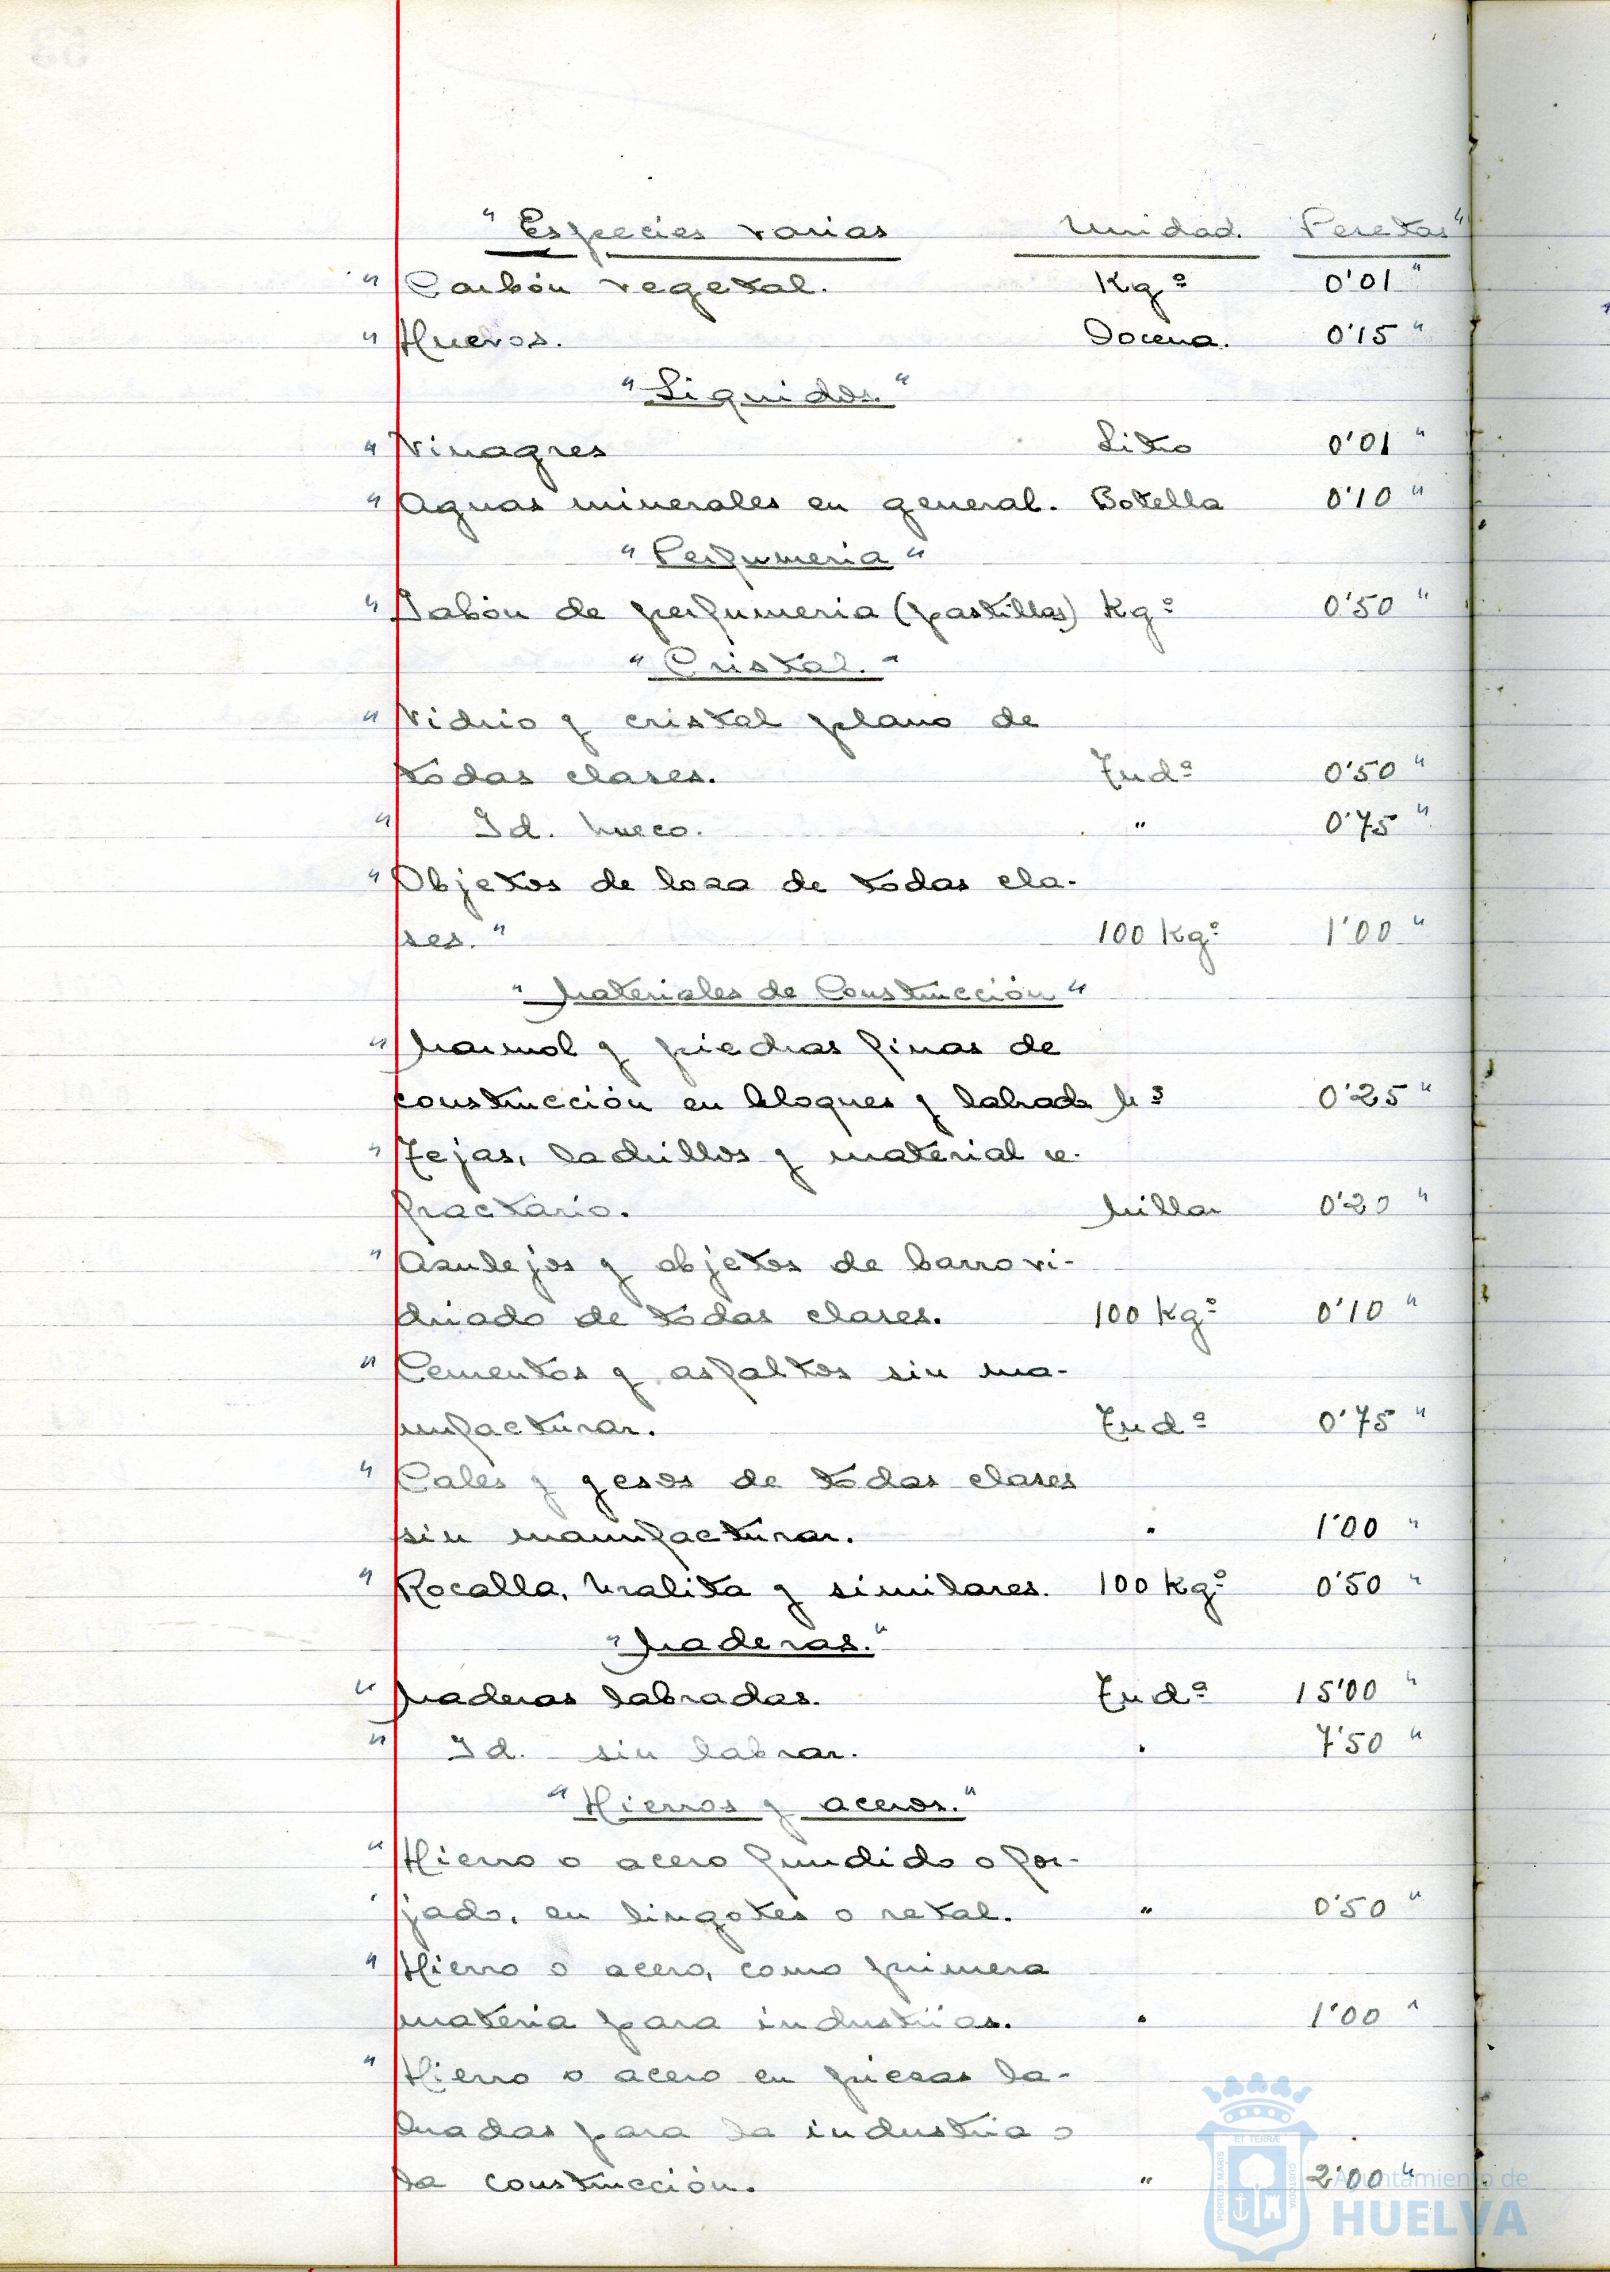 " Especies varias Unidad. Pesetas "
" Carbón vegetal. Kgº 0'01 "
" Huevos. Docena. 0'15 "
" Liquidos. "
" Vinagres Litro 0'01 "
" Aguas minerales en general. Botella 0'10 "
" Perfumeria "
" Jabón de perfumeria (pastillas) Kgº 0'50 "
" Cristal. "
" Vidrio y cristal plano de
todas clases. Tndª 0'50 "
" Id. hueco. " 0'75 "
" Objetos de loza de todas cla-
ses. " 100 Kgº 1'00 "
" Materiales de Construcción "
" Marmol y piedras finas de
construcción en bloques y labrada M3 0'25 "
" Tejas, ladrillos y material re-
fractario. Millar 0'20 "
" Azulejos y objetos de barro vi-
driado de todas clases. 100 Kgº 0'10 "
" Cementos y asfaltos sin ma-
nufacturar. Tndª 0'75 "
" Cales y yesos de todas clases
sin manufacturar. " 1'00 "
" Rocalla, Uralita y similares. 100 Kgº 0'50 "
" Maderas. "
" Maderas labradas. Tndª 15'00 "
" Id. sin labrar. " 7'50 "
" Hierros y aceros. "
" Hierro o acero fundido o for-
" jado, en lingotes o retal. " 0'50 "
" Hierro o acero, como primera
materia para industrias. " 1'00 "
" Hierro o acero en piezas la-
bradas para la industria o
la construcción. " 2'00 "
PORTUS MARIS ET TERRÆ CUSTODIA
Ayuntamiento de
HUELVA